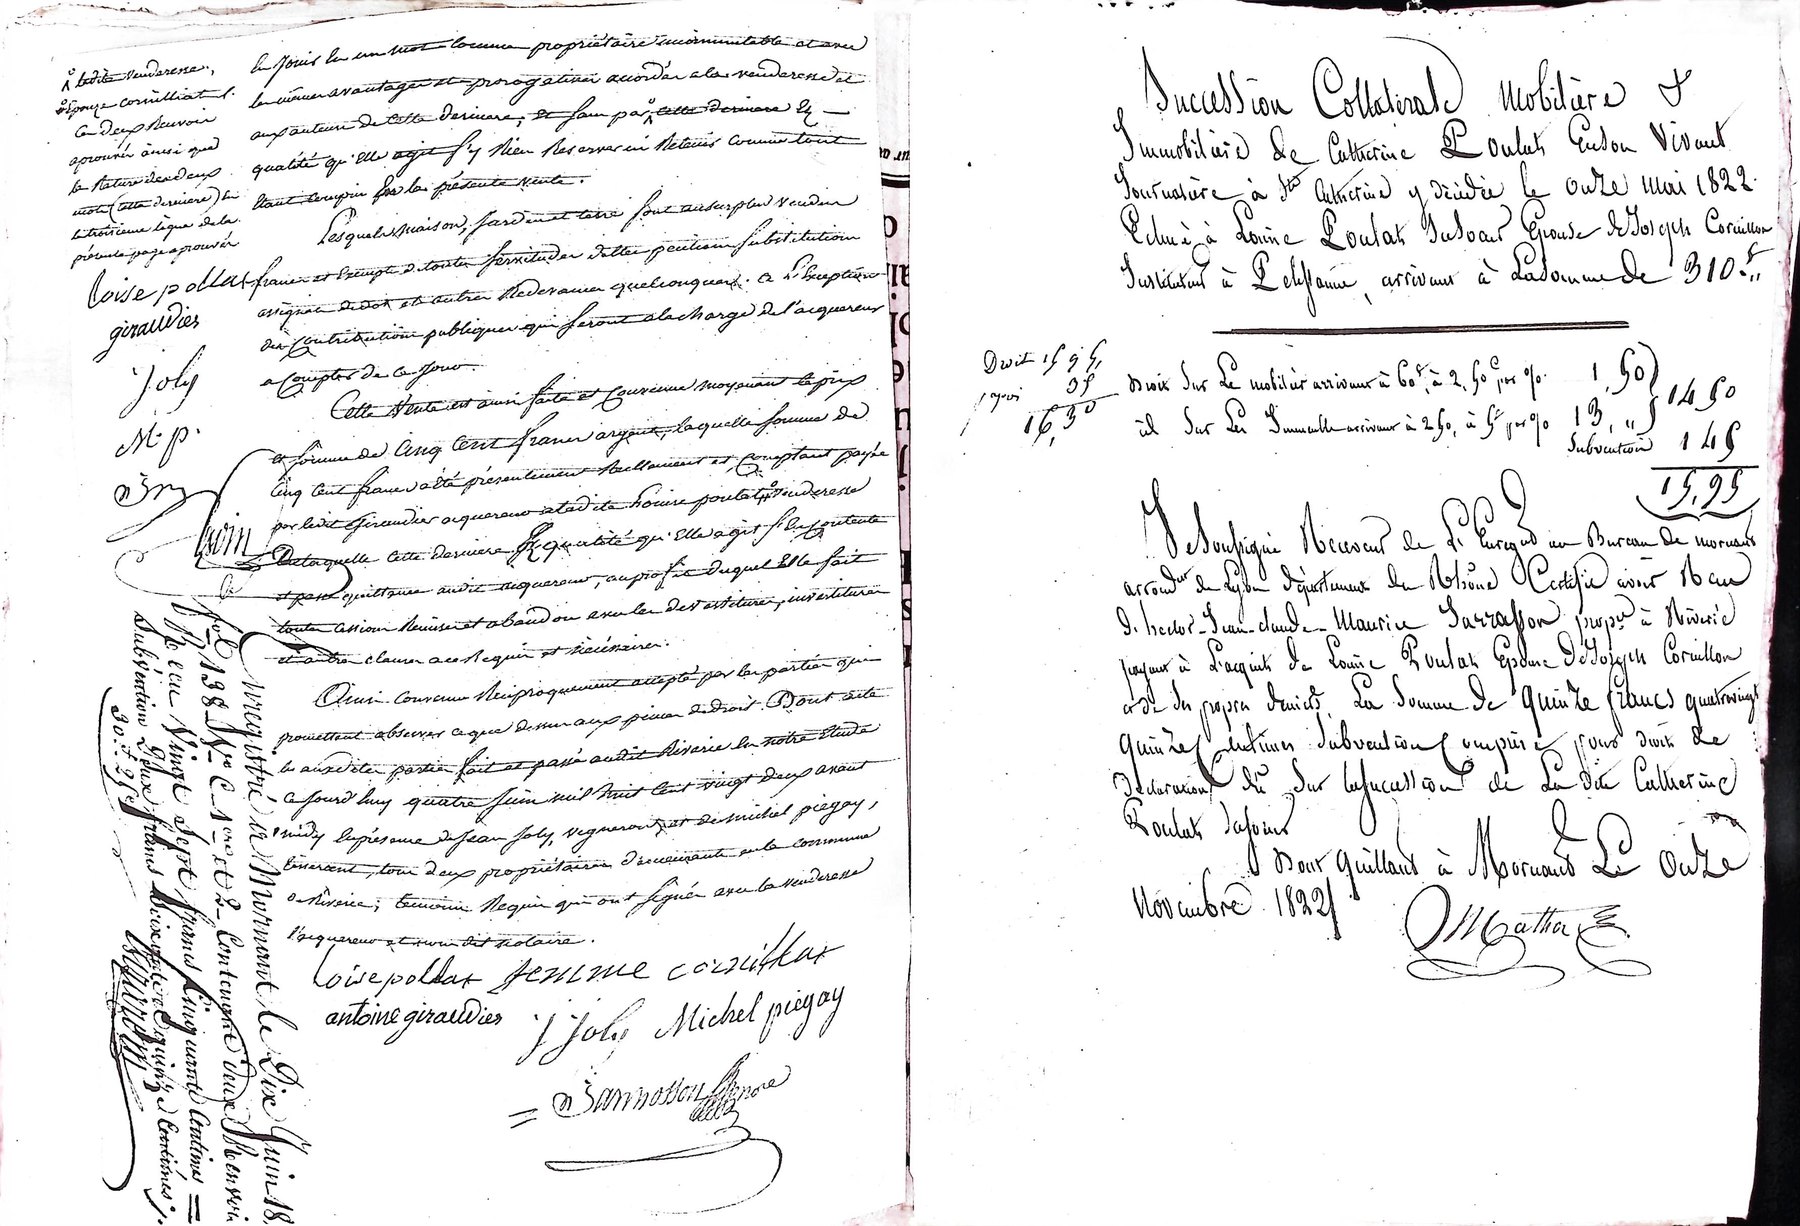 ladite venderesse,
Epouze cornilliat /.
Ces deux Renvois
aprouvés ainsi que
la Rature des deux
mots (cette derniere) En
la troisieme ligne de la
présente page aprouvés
loise pollat
giraudier
j joly
M. p.
En jouir En un mot Comme propriétaire incommutable et avec
les mêmes avantages et prérogatives accordés a la venderesse et
aux auteurs de Cette derniere, et sans par cette derniere En
qualité qu'Elle agit s'y Rien Reserver ni Retenir Comme tout
étant Compris En la présente vente.
Lesquels maison, jardin et terre sont au surplus vendus
francs et Exempts de toutes servitudes dettes pention substitution
assignaux de dot et autres Redevances quelconques. a l'Exception
des Contributions publiques qui seront a la charge de l'acquereur
a Compter de Ce jour.
Cette vente est ainsi faite et Convenue moyenant le prix
et somme de Cinq Cent francs argent, laquelle somme de
Cinq Cent francs a été présentement Réellement et Comptant payée
par ledit Giraudier acquereur a ladite Louise poulat venderesse
De laquelle cette derniere En qualité qu'Elle agit s'En Contente
et passe quittance audit acquereur, au profit duquel Elle fait
toutes cession Remise et abandon avec les devestitures, investitures
et autres clauses a ce Requises et nécéssaires.
Ainsi Convenu Réciproquement accepté par les parties qui
promettent observer ce que dessus aux peines de droit. Dont acte
les auxdites parties fait et passé audit Riverie En notre Etude
Ce jourd'huy quatre juin mil huit Cent vingt deux avant
midy En présence de Jean Joly, vigneron et de michel piégay,
tisserant, tous deux propriétaires demeurants en la commune
de Riverie, témoins Requis qui ont signés avec la venderesse
l'acquereur et nous dit notaire.
loise pollat femme cornillat
antoine giraudier j joly Michel piegay
Enregistré à Mornant le Dix Juin 18
fol 138 R° C 1ere et 2 Contenant deux Renvois
Reçu Vingt Sept francs Cinquante Centimes =
Subvention Deux francs Soixante quinze Centimes /.
30.f 25c
Succession Collatérale Mobilière &
Immobilière de Catherine Poulat En son Vivant
Journalière à Ste Catherine y décédée le onze mai 1822.
Echue à Louise Poulat Sa Soeur Epouse de Joseph Cornillon
Instituteur à Pelissanne, arrivant à la Somme de 310 f "
Droit 15 95,
35
16,30
Droit Sur Le mobilier arrivant à 60 f, à 2,50 c per % 1,50
id Sur Les Immeubles arrivant à 250, à 5 f per % 13, "
14 50
Subvention 1 45
15,95
Je Soussigné Receveur de L'Enregt au Bureau de mornant
arrondt de Lyon département du Rhône Certifie avoir Reçu
d. hector-Jean-claude-Maurice Jarrosson propre à Riverie
payant à L'acquit de Louise Poulat Epouse de Joseph Cornillon
et de Ses propres deniers, La Somme de quinze francs quatrevingt
quinze Centimes Subvention Comprise pour droit de
Déclaration dû Sur la Succession de La dite Catherine
Poulat Sa Soeur
Dont Quittance à Mornant Le Onze
Novembre 1822